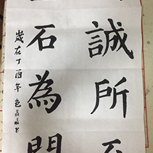 誠所至
石為開
歲在丁酉年